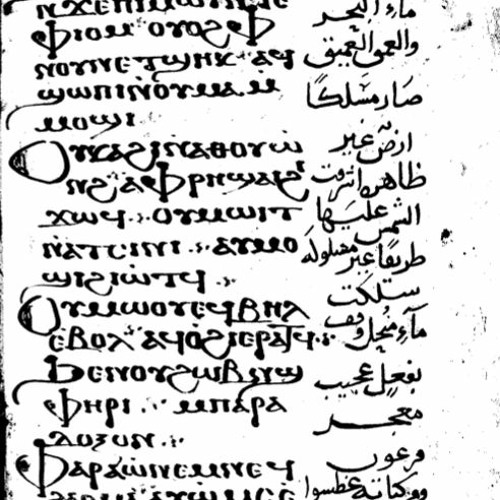 ⲛϫⲉⲡⲓⲙⲱⲟⲩⲛⲧⲉ
ⲫⲓⲟⲙ ⲟⲩⲟϩⲫ
ⲛⲟⲩⲛⲉⲧϣⲏⲕ ⲁϥ
ϣⲱⲡⲓⲛⲟⲩⲙⲁ ⲙ
ⲙⲟϣⲓ
Ⲟⲩⲕⲁϩⲓⲛⲁⲑⲟⲩⲱ
ⲛϩ ⲁⲫⲣⲏϣⲁⲓϩⲓ
ϫⲱϥ ⲟⲩⲙⲱⲓⲧ
ⲛⲁⲧⲥⲓⲛⲓ ⲁⲩⲙⲟ
ϣⲓϩⲓⲱⲧϥ
Ⲟⲩⲙⲱⲟⲩⲉϥⲃⲏⲗ
ⲉⲃⲟⲗ ⲁϥⲟϩⲓⲉⲣⲁⲧϥ
Ϧⲉⲛⲟⲩϩⲱⲃⲛϣ
ⲫⲏⲣⲓ ⲙⲡⲁⲣⲁ
ⲇⲟⲝⲟⲛ
Ⲫⲁⲣⲁⲱⲛⲉⲙⲛⲉϥ
ماء البحر
والعمق العميق
صار مسلكًا
ارض غير
ظاهره اشرقت
الشمس عليها
طريقًا غير مسلوكه
سلكت
مآء منحل وقف
بفعل عجيب
معجز
فرعون
ومركباته غطسوا